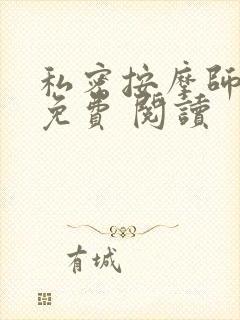 私密按摩師
免費 閱讀
有城